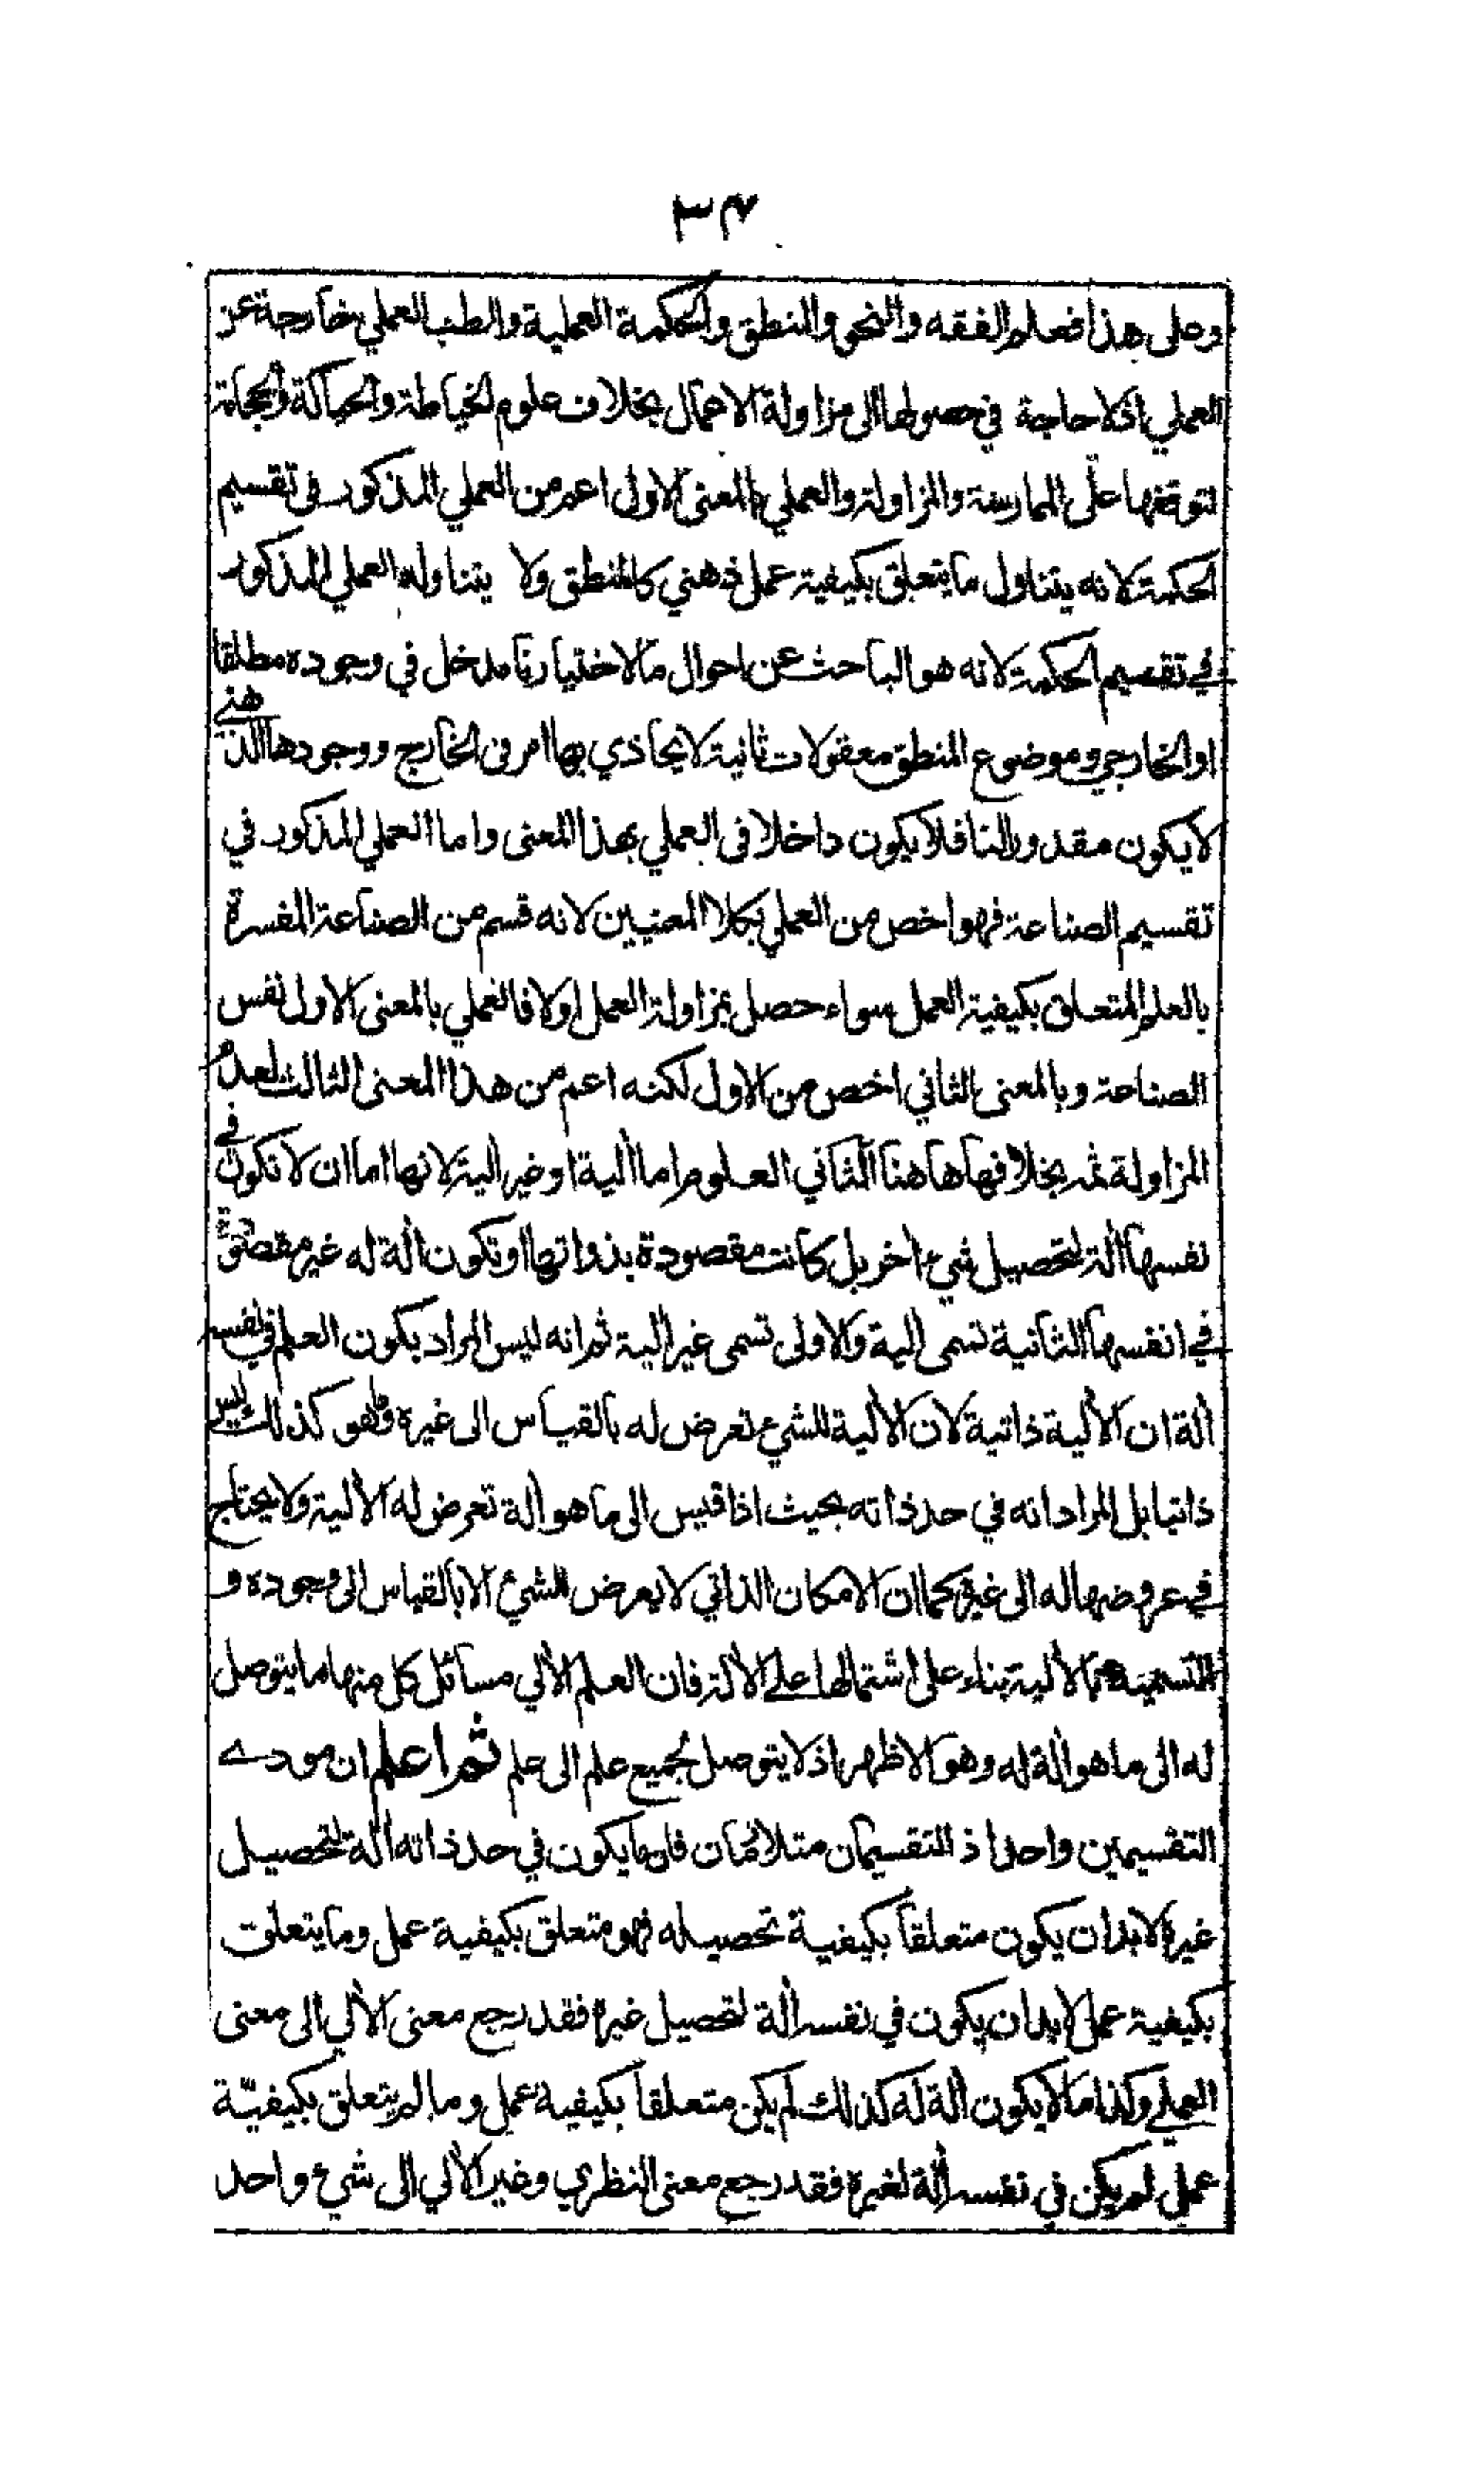 ٣٤
وعلى هذا فعلم الفقه والنحو والمنطق والحكمة العملية والطب العملي خارجة عن
العملي اذ لا حاجة في حصولها الى مزاولة الاعمال بخلاف علوم الخياطة والحياكة والحجامة
لتوقفها على الممارسة والمزاولة والعملي بالمعنى الاول اعم من العملي المذكور في تقسيم
الحكمة لانه يتناول ما يتعلق بكيفية عمل ذهني كالمنطق ولا يتناوله العملي المذكور
في تقسيم الحكمة لانه هو الباحث عن احوال ما لاختيارنا مدخل في وجوده مطلقا
او الخارجي وموضوع المنطق معقولات ثانية لا يحاذي بها امر في الخارج ووجودها الذهني
لا يكون مقدورا لنا فلا يكون داخلا في العملي بهذا المعنى واما العملي المذكور في
تقسيم الصناعة فهو اخص من العملي بكلا المعنيين لانه قسم من الصناعة المفسرة
بالعلم المتعلق بكيفية العمل سواء حصل بمزاولة العمل او لا فالعملي بالمعنى الاول نفس
الصناعة وبالمعنى الثاني اخص من الاول لكنه اعم من هذا المعنى الثالث لعدم
المزاولة ثمه بخلافها هاهنا الثاني العلوم اما الية او غير الية لانها اما ان لا تكون في
نفسها آلة لتحصيل شيء اخر بل كانت مقصودة بذواتها او تكون آلة له غير مقصودة
في انفسها الثانية تسمى الية والاولى تسمى غير الية ثم انه ليس المراد بكون العلم في نفسه
ألة ان الألية ذاتية لان الألية للشيء تعرض له بالقياس الى غيره وما هو كذلك ليس
ذاتيا بل المراد انه في حد ذاته بحيث اذا قيس الى ما هو ألة تعرض له الألية ولا يحتاج
في عروضها له الى غيره كما ان الامكان الذاتي لا يعرض للشيء الا بالقياس الى وجوده و
التسمية بالألية بناء على اشتمالها على الألة فان العلم الألي مسائل كل منها ما يتوصل
له الى ما هو ألة له وهو الاظهر اذ لا يتوصل بجميع علم الى علم ثم اعلم ان مودى
التقسيمين واحد اذ التقسيمان متلازمان فان ما يكون في حد ذاته ألة لتحصيل
غيره لا بد ان يكون متعلقا بكيفية تحصيله فهو متعلق بكيفية عمل وما يتعلق
بكيفية عمل لا بد ان يكون في نفسه ألة لتحصيل غيره فقد رجع معنى الألي الى معنى
العملي وكذا ما لا يكون ألة له كذلك لم يكن متعلقا بكيفية عمل وما لم يتعلق بكيفيّة
عمل لم يكن في نفسه ألة لغيره فقد رجع معنى النظري وغير الألي الى شيء واحد